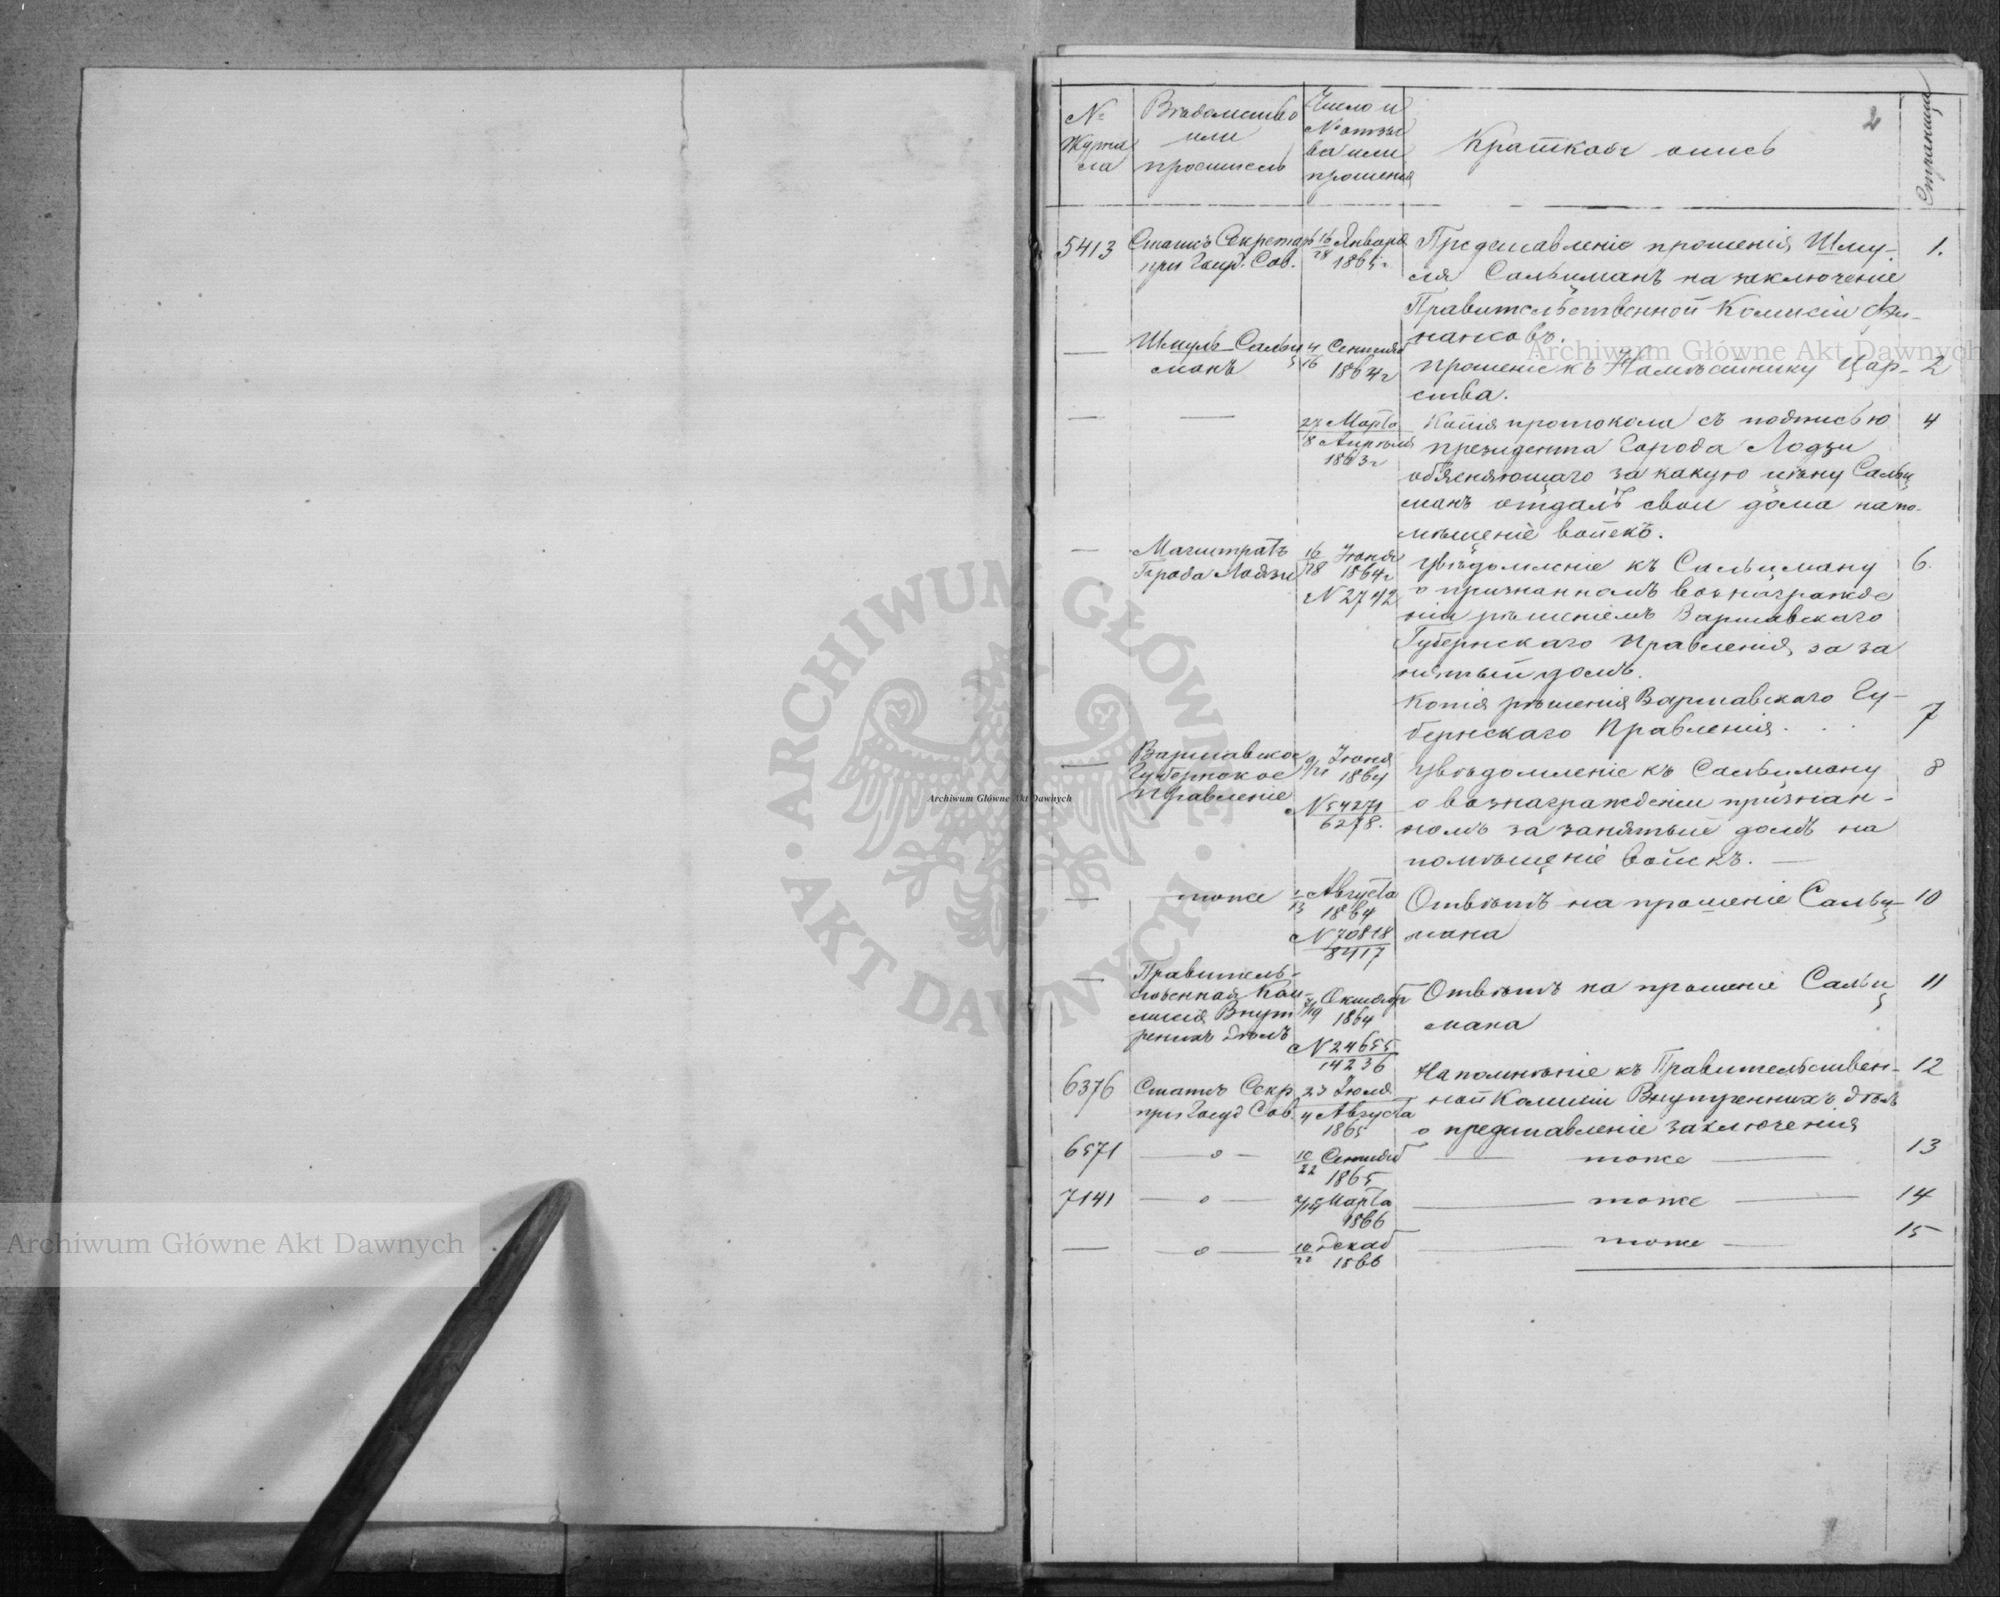 2
№ Журна ла
Вѣдомство или проситель
Число и № отзы ва или прошенія
Краткая опись
Страницы
5413 Статсъ Секретарь при Госуд. Сов. 16/28 Января 1865 г Представленіе прошенія Шму- 1.
ля Сальцманъ на заключение
Правительственной Комисіи Фи-
нансовъ.
— Шмуль Сальц манъ 4/16 Сентяб 1864 г прошеніе къ Намѣстнику Цар- 2
ства.
— — 27 Марта / 8 Апрѣля 1863 г Копія протокола съ подписью 4
президента Города Лодзи
объясняющаго за какую цѣну Сальц
манъ отдалъ свои дома на по-
мѣщеніе войскъ.
— Магистратъ Города Лодзи 16/28 Іюня 1864 г № 2742 увѣдомленіе къ Сальцману 6.
о признанномъ вознагражде
ніи рѣшеніемъ Варшавскаго
Губернскаго Правленія, за за
нятый домъ.
Копія рѣшенія Варшавскаго Гу- 7
бернскаго Правленія . .
— Варшавское Губернское Правленіе 9/21 Іюня 1864 № 54271/6278. увѣдомленіе къ Сальцману 8
о вознагражденіи признан-
номъ за занятый домъ на
помѣщеніе войскъ. —
— тоже 1/13 Августа 1864 № 70818/8417 Отвѣтъ на прошеніе Сальц- 10
мана
— Правитель- ственная Ком- мисія Внут реннихъ Дѣлъ 7/19 Октября 1864 № 24655/14236 Отвѣтъ на прошеніе Сальц 11
мана
6376 Статсъ Секр. при Госуд Сов. 23 Іюля / 4 Августа 1865 Напомнѣніе къ Правительствен- 12
ной Комисіи Внутреннихъ дѣлъ
о представленіе заключенія
6571 — о — 10/22 Сентяб 1865 — тоже — 13
7141 — о — 2/14 Марта 1866 — тоже — 14
— — о — 10/22 декаб 1866 — тоже — 15
Archiwum Główne Akt Dawnych
Archiwum Główne Akt Dawnych
Archiwum Główne Akt Dawnych
ARCHIWUM GŁÓWNE · AKT DAWNYCH ·